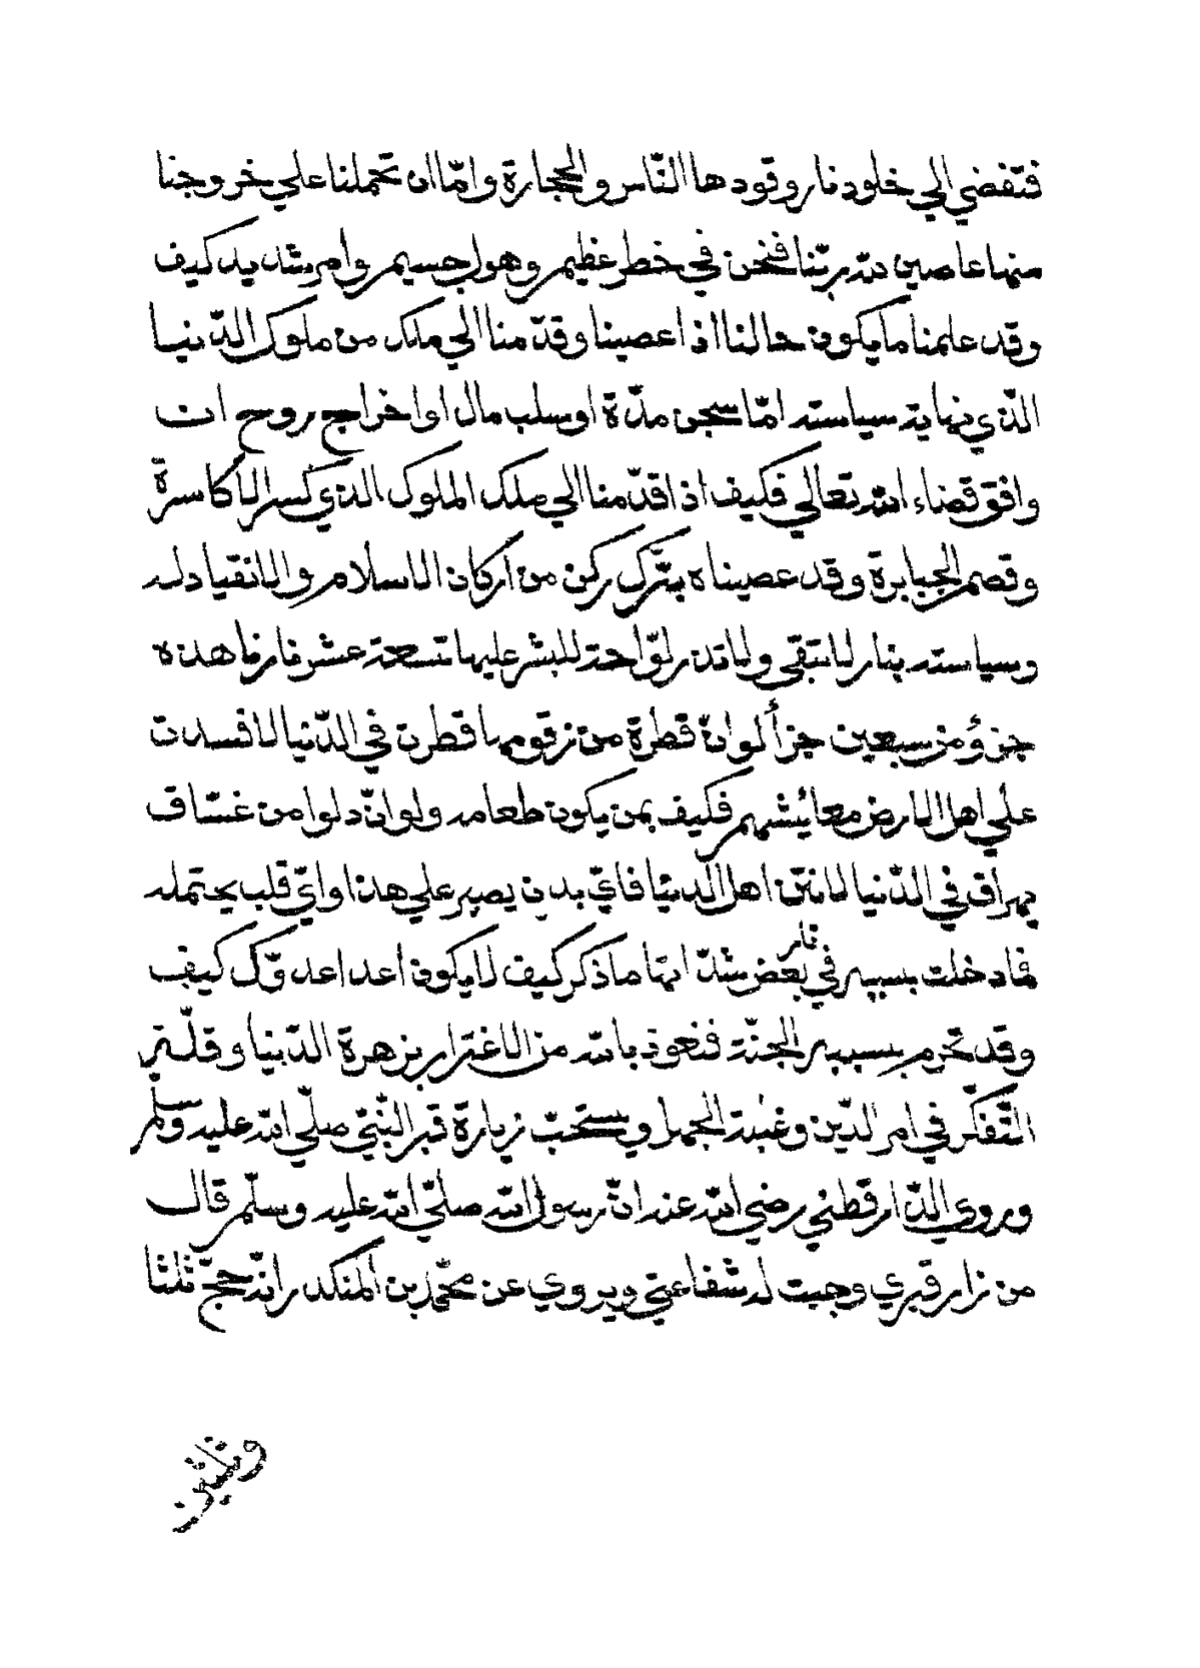 فتفضي الي خلود نار وقودها النّاس والحجارة وامّا ان تحملنا علي خروجنا
منها عاصين لله ربّنا فنحن في خطر عظيم وهول جسيم وامر شديد كيف
وقد علمنا ما يكون حالنا اذا عصينا وقدّمنا الي ملك من ملوك الدّنيا
الّذي نهاية سياسته امّا سجن مدّة او سلب مال او اخراج روح ان
وافق قضاء الله تعالي فكيف اذا قدّمنا الي ملك الملوك الذي كسر الاكاسرة
وقصم الجبابرة وقد عصيناه بترك ركن من اركان الاسلام والانقياد له
وسياسته بنار لا تبقي ولا تذر لوّاحة للبشر عليها تسعة عشر نارنا هذه
جزؤ من سبعين جزأ لو انّ قطرة من زقومها قطرت في الدّنيا لافسدت
علي اهل الارض معائيشهم فكيف بمن يكون طعامه ولو انّ دلوا من غسّاق
يهراق في الدّنيا لانتن اهل الدنيا فايّ بدن يصبر علي هذا وايّ قلب يحتمله
فما دخلت بسببه في نار بعض شدّاتها ما ذكر كيف لا يكون اعدا عدوّك كيف
وقد تحرم بسببه الجنّة فنعوذ بالله من الاغترار بزهرة الدّنيا وقلّة
التّفكّر في امر الدّين وغلبة الجهل ويستحبّ زيارة قبر النّبيّ صلّي الله عليه وسلّم
وروي الدّارقطني رضي الله عنه انّ رسول الله صلّي الله عليه وسلّم قال
من زار قبري وجبت له شفاعتي ويروي عن محّمد بن المنكدر انّه حجّ ثلثا
وثلثين